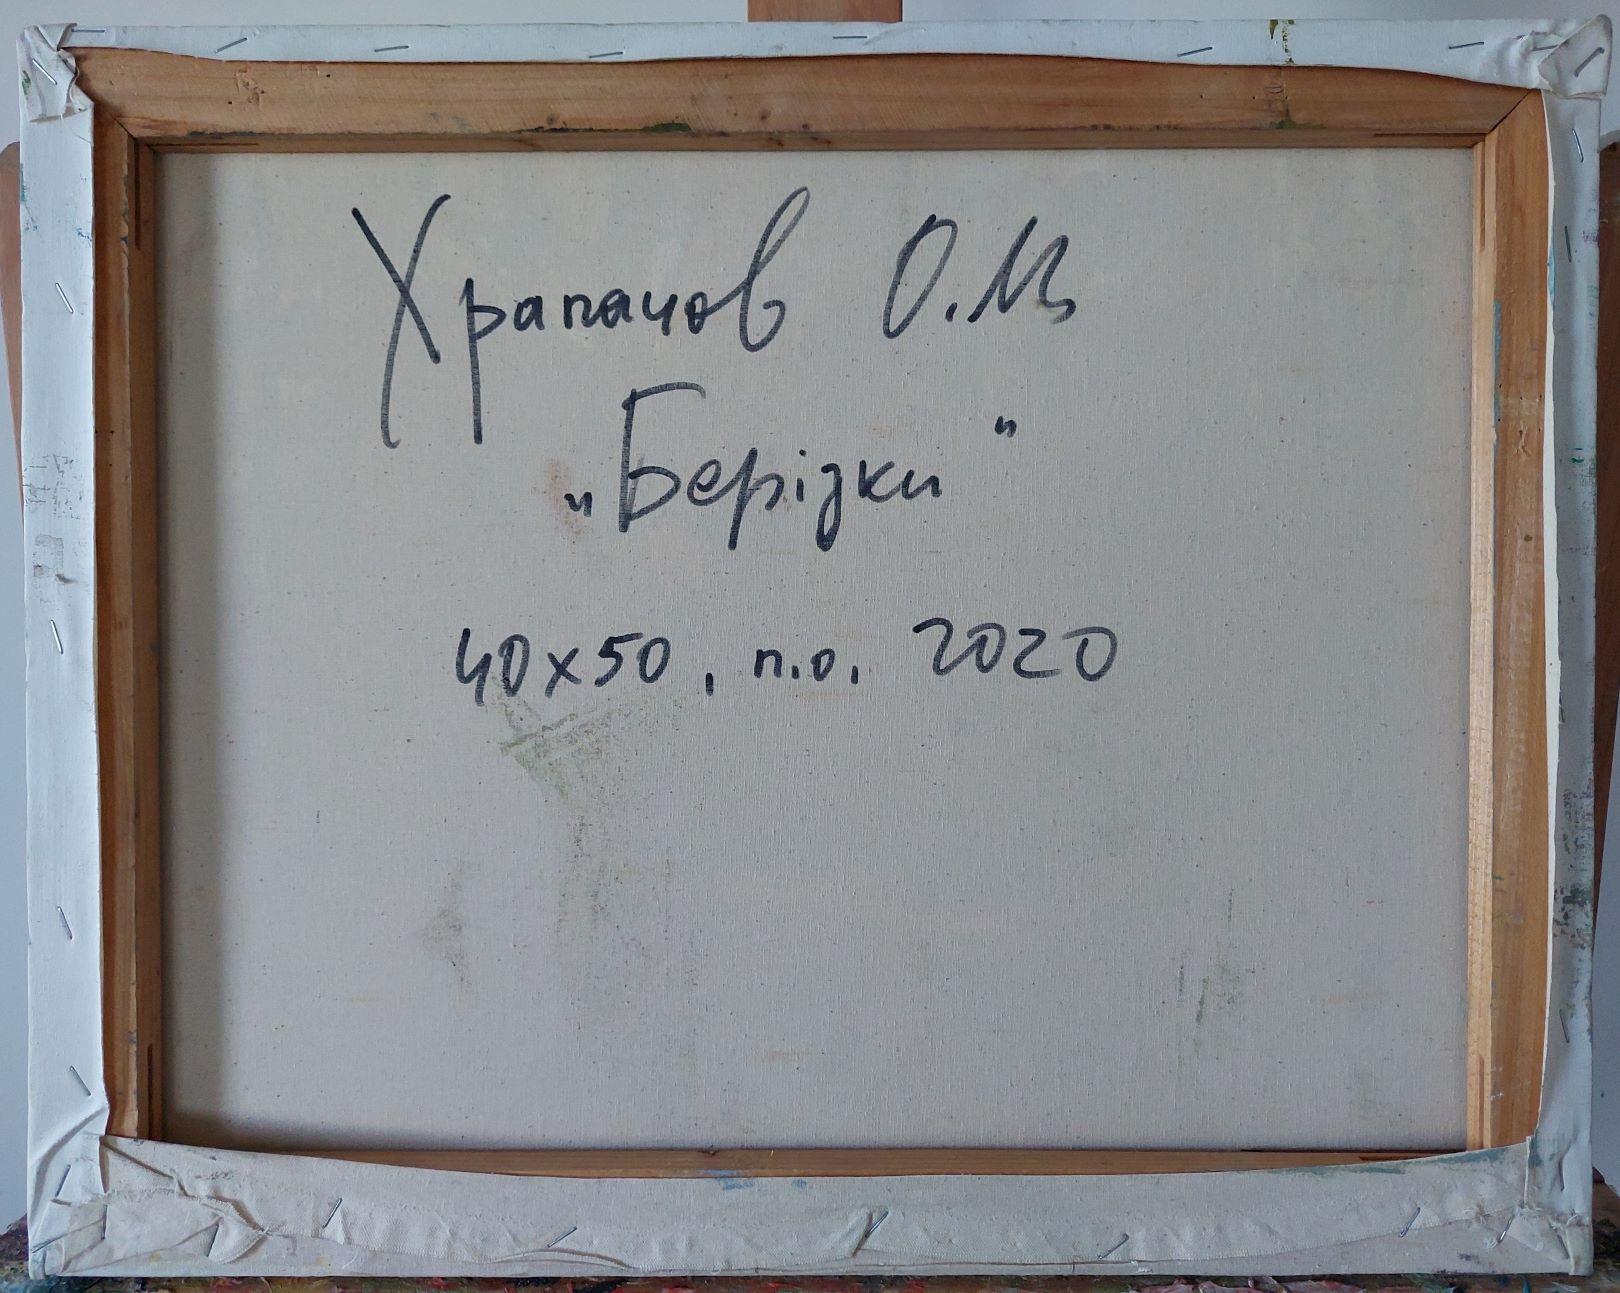 Храпачов О.М
„Берізки"
40х50, п.о. 2020